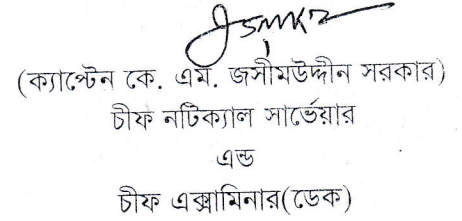 (ক্যাপ্টেন কে. এম. জসীমউদ্দীন সরকার)
চীফ নটিক্যাল সার্ভেয়ার
এন্ড
চীফ এক্সামিনার(ডেক)